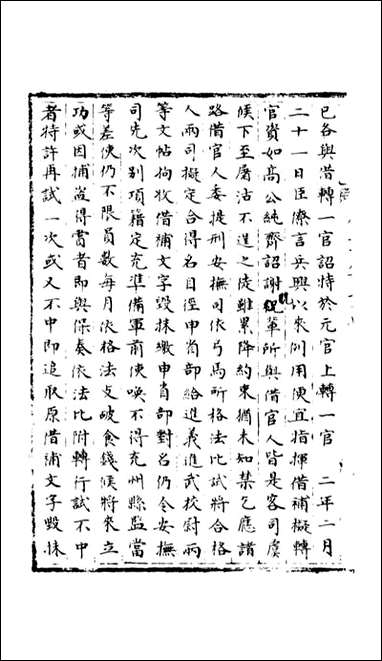 已各與借轉一官詔特於元官上轉一官　二年二月
二十一日臣僚言兵興以來例用便宜指揮借補擬轉
官資如高公純齊詔謝貺輩所與借官人皆是客司虞
候下至屠沽不逞之徒雖累降約束猶未知禁乞應諸
路借官人委提刑安撫司依弓馬所格法比試將合格
人兩司擬定合得名目徑申省部給進義進武校尉兩
等文帖拘收借補文字毀抹繳申省部對名仍令安撫
司先次別項籍定充準備軍前使喚不得充州縣監當
等差使仍不限員數每月依格法支破食錢候將來立
功或因捕盜得賞者即與保奏依法比附轉行試不中
者特許再試一次或又不中即追取原借補文字毀抹